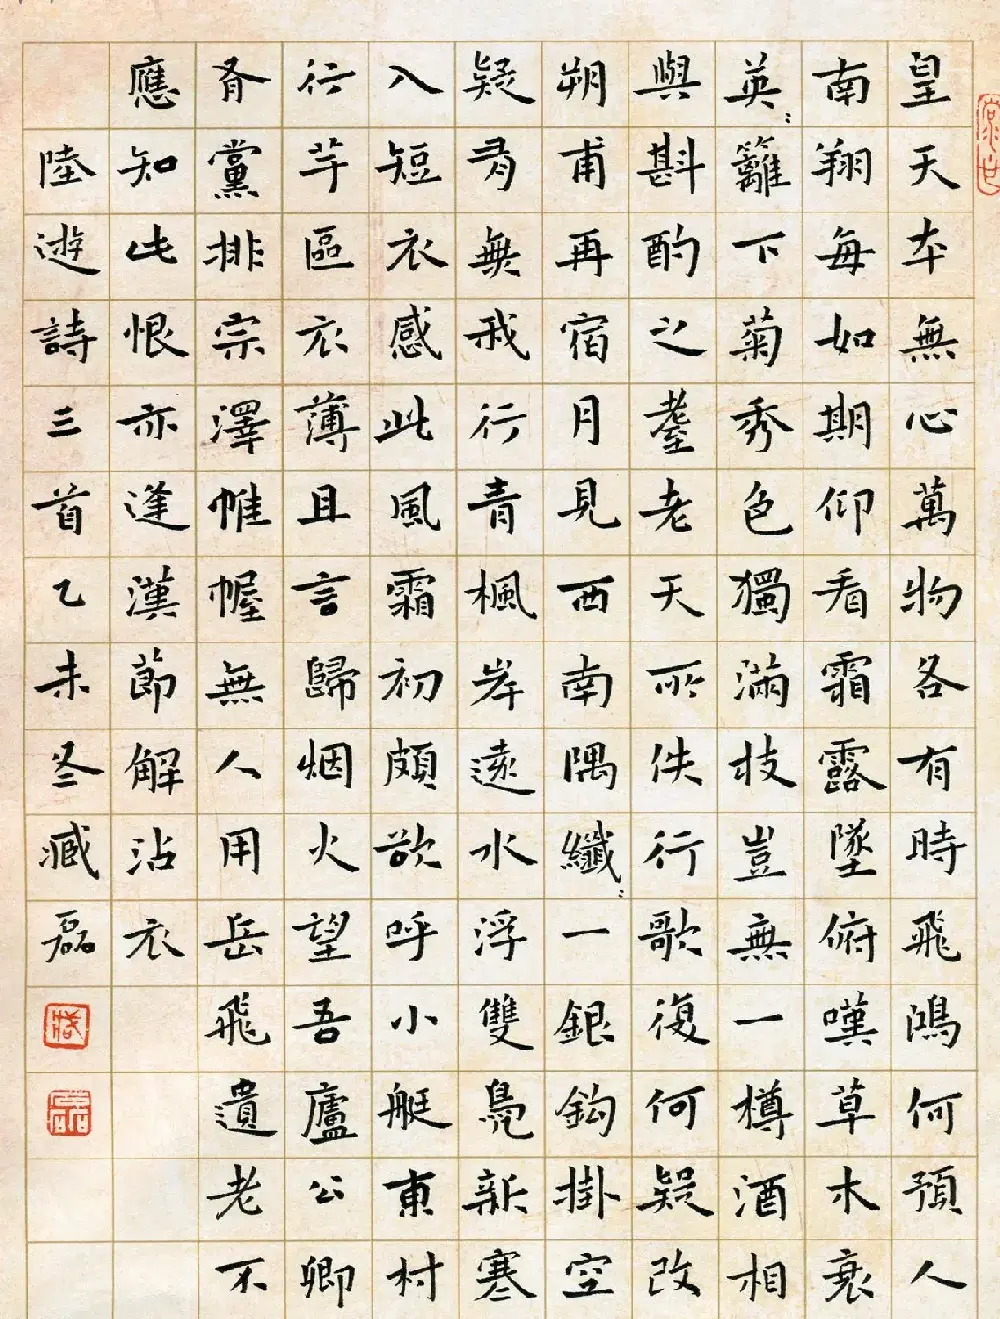 皇天本無心萬物各有時飛鴻何預人
南翔每如期仰看霜露墜俯嘆草木衰
英〻籬下菊秀色獨滿枝豈無一樽酒相
與斟酌之耋老天所佚行歌復何疑改
朔甫再宿月見西南隅纖〻一銀鈎掛空
疑有無我行青楓岸遠水浮雙鳧新寒
入短衣感此風霜初頗欲呼小艇東村
行芋區衣薄且言歸烟火望吾廬公卿
有黨排宗澤帷幄無人用岳飛遺老不
應知此恨亦逢漢節解沾衣
陸遊詩三首乙未冬臧磊
臧
磊